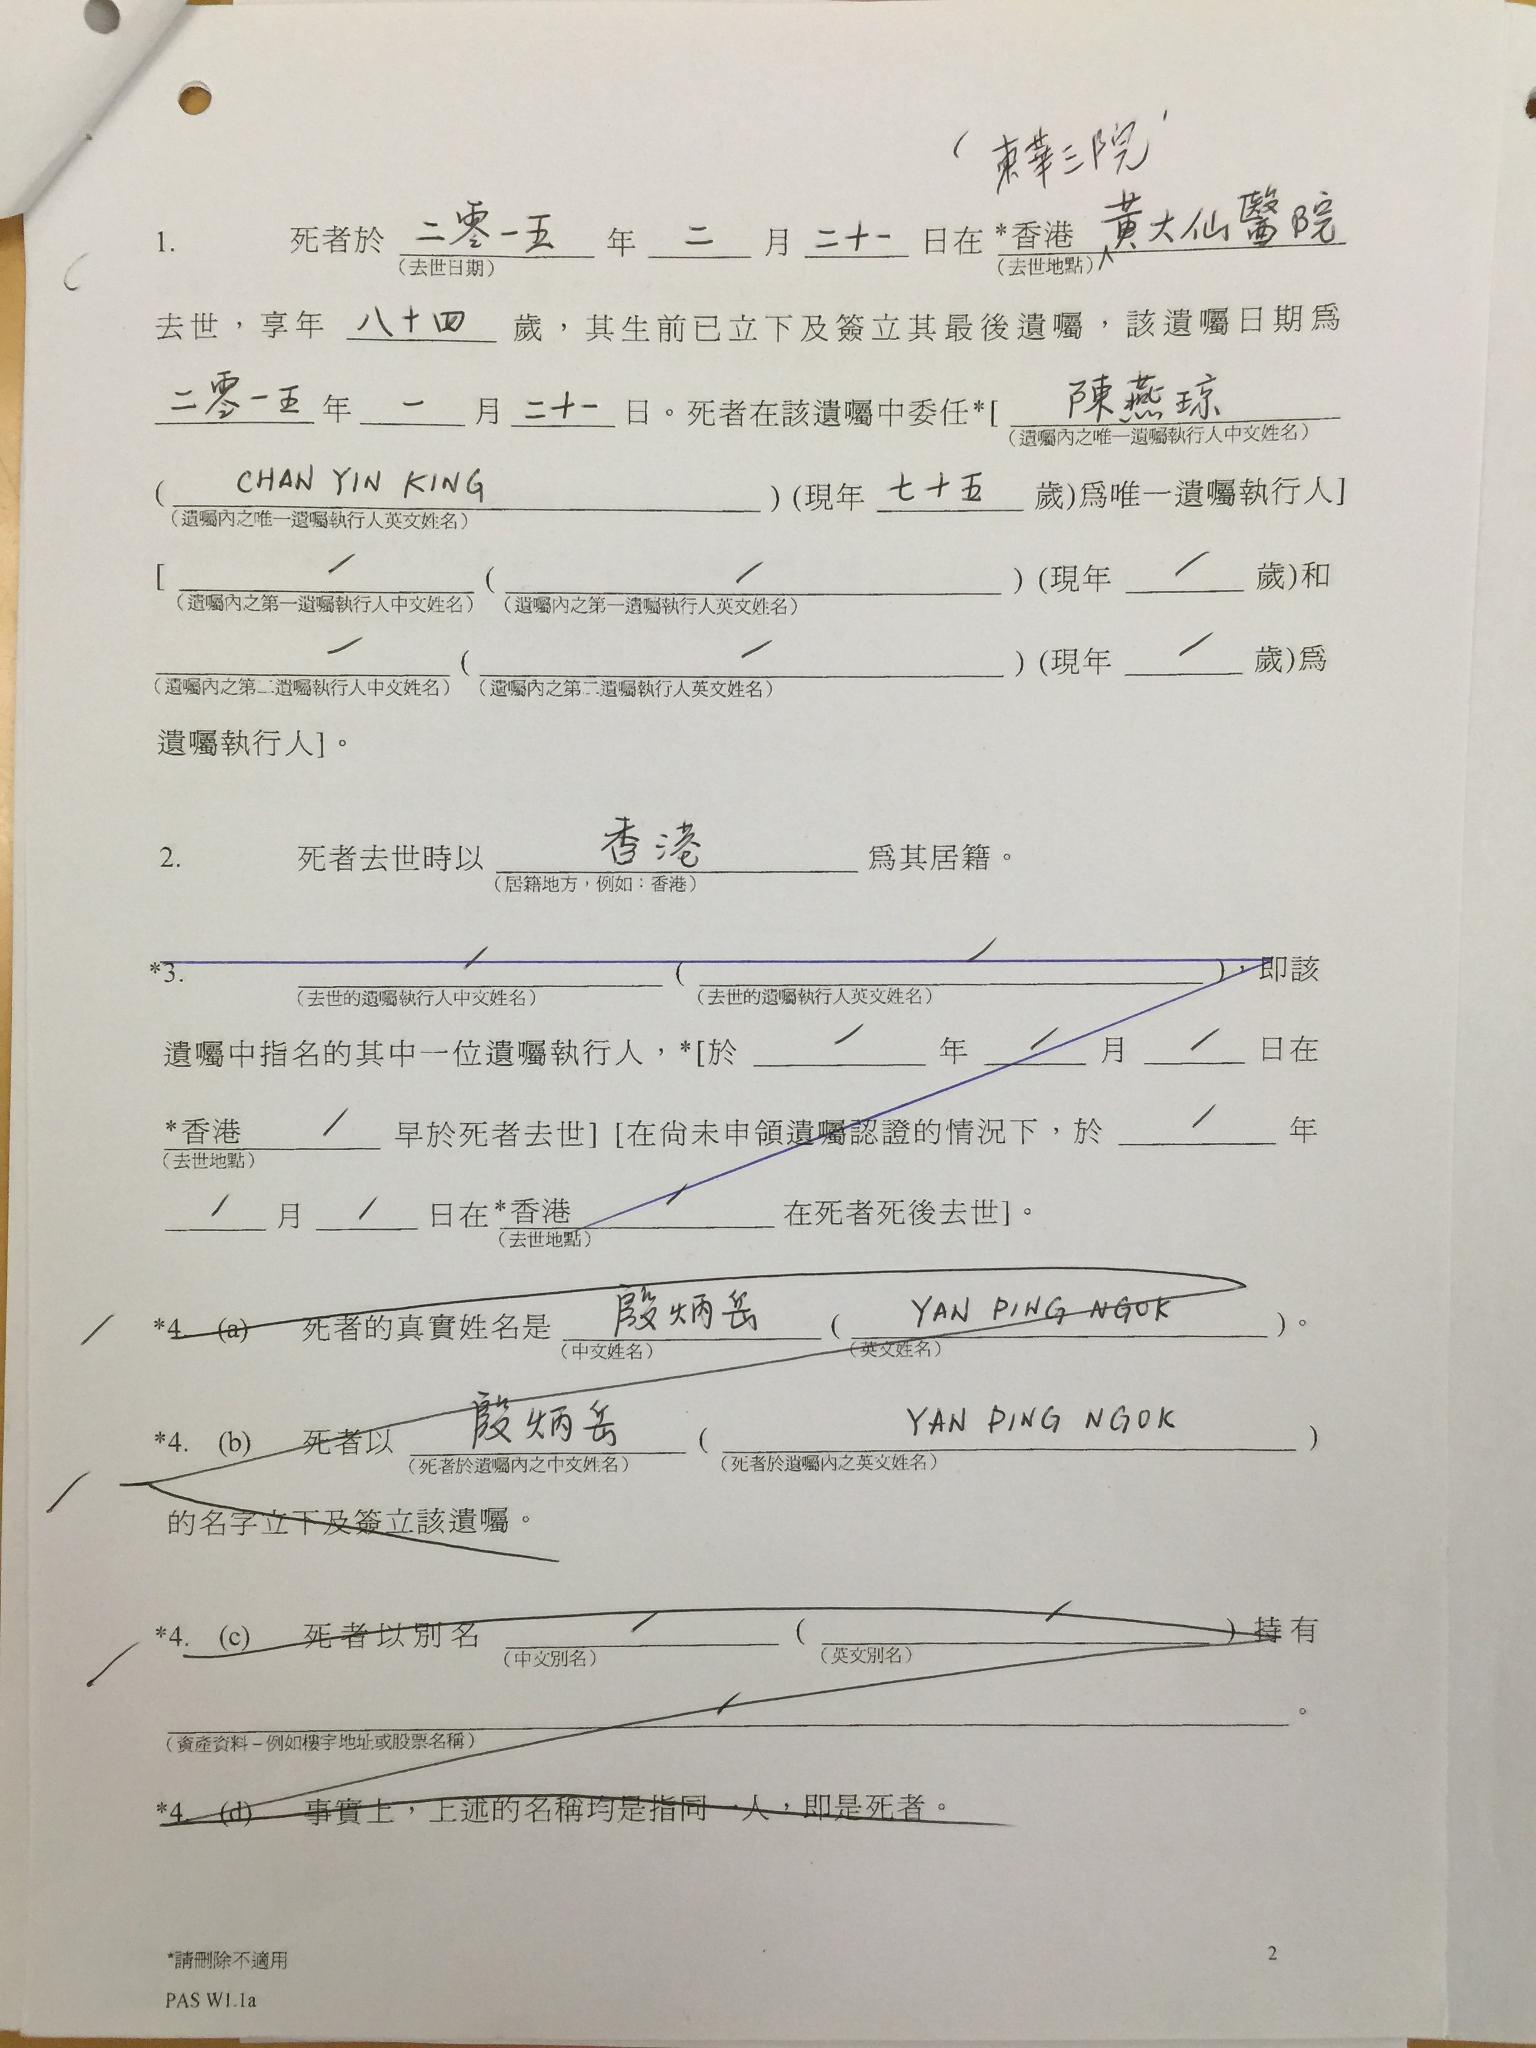 東華三院
1. 死者於 二零一五 年 二 月 二十一 日在 *香港 黃大仙醫院
(去世日期) (去世地點)
去世，享年 八十四 歲，其生前已立下及簽立其最後遺囑，該遺囑日期爲
二零一五 年 一 月 二十一 日。死者在該遺囑中委任*[ 陳燕琼
(遺囑內之唯一遺囑執行人中文姓名)
( CHAN YIN KING ) (現年 七十五 歲)爲唯一遺囑執行人]
(遺囑內之唯一遺囑執行人英文姓名)
[ / ( / ) (現年 / 歲)和
(遺囑內之第一遺囑執行人中文姓名) (遺囑內之第一遺囑執行人英文姓名)
/ ( / ) (現年 / 歲)爲
(遺囑內之第二遺囑執行人中文姓名) (遺囑內之第二遺囑執行人英文姓名)
遺囑執行人]。
2. 死者去世時以 香港 爲其居籍。
(居籍地方，例如：香港)
*3. / ( / )，即該
(去世的遺囑執行人中文姓名) (去世的遺囑執行人英文姓名)
遺囑中指名的其中一位遺囑執行人，*[於 / 年 / 月 / 日在
*香港 / 早於死者去世] [在尚未申領遺囑認證的情況下，於 / 年
(去世地點)
/ 月 / 日在*香港 / 在死者死後去世]。
(去世地點)
*4. (a) 死者的真實姓名是 殷炳岳 ( YAN PING NGOK )。
(中文姓名) (英文姓名)
*4. (b) 死者以 殷炳岳 ( YAN PING NGOK )
(死者於遺囑內之中文姓名) (死者於遺囑內之英文姓名)
的名字立下及簽立該遺囑。
*4. (c) 死者以別名 / ( / ) 持有
(中文別名) (英文別名)
/ 。
(資產資料－例如樓宇地址或股票名稱)
*4. (d) 事實上，上述的名稱均是指同一人，即是死者。
*請刪除不適用
2
PAS W1.1a